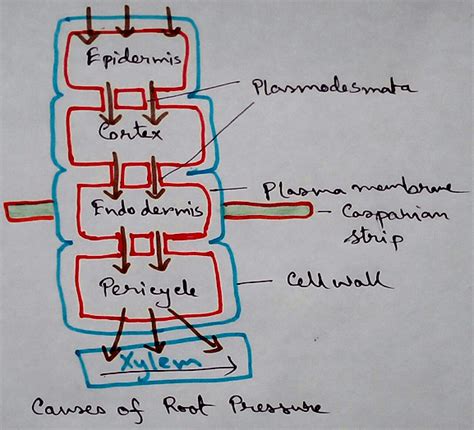 Epidermis
Plasmodesmata
Cortex
Plasma membrane
Endodermis
Casparian
strip
Cell wall
Pericycle
Xylem
Causes of Root Pressure